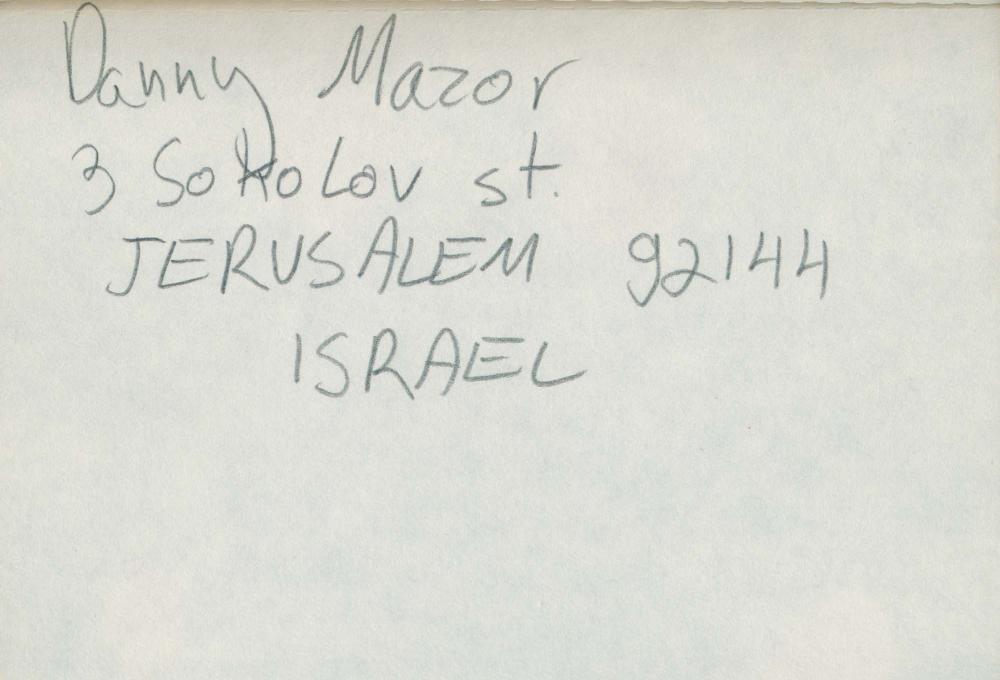 Danny Mazor
3 Sokolov st.
JERUSALEM 92144
ISRAEL